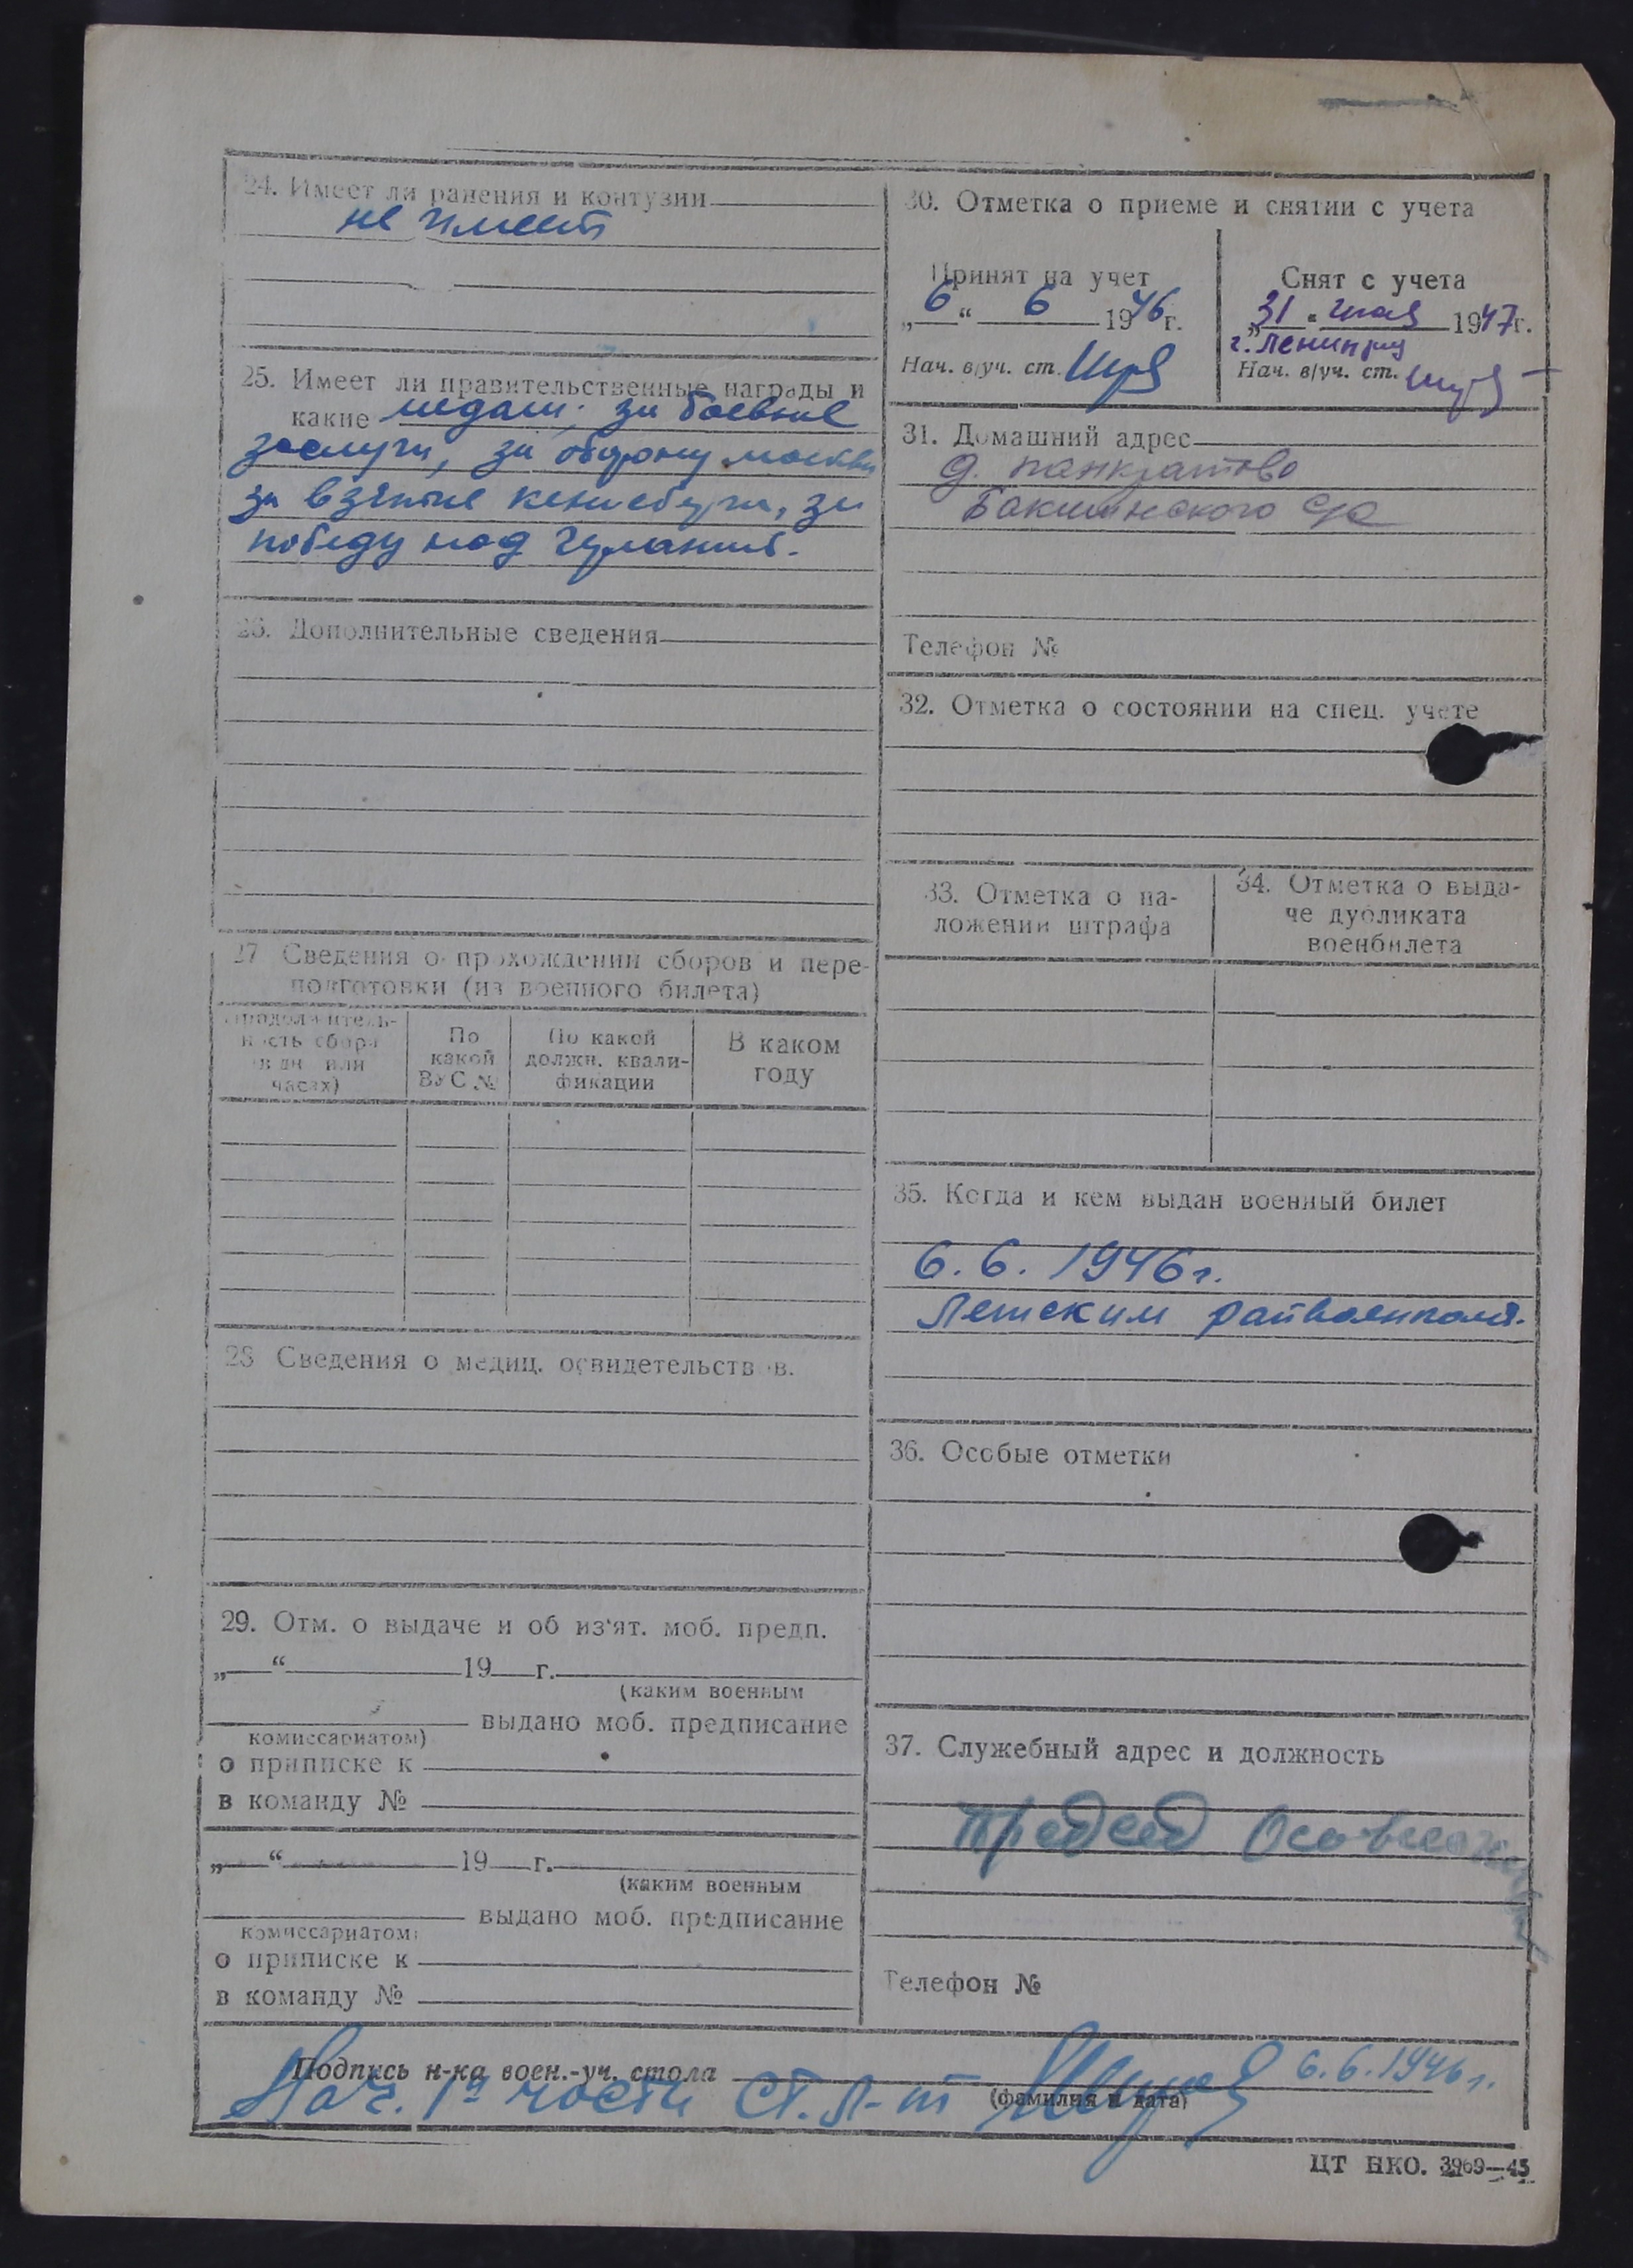 24. Имеет ли ранения и контузии
не имеет
25. Имеет ли правительственные награды и
какие медали: за боевые
заслуги, за оборону москвы
за взятие кенисберга, за
победу над
26. Дополнительные сведения
27 Сведения о прохождении сборов и пере-
подготовки (из военного билета)
Продолжитель-
ность сбора
(в дн или
часах)
По
какой
ВУС №
По какой
должн. квали-
фикации
В каком
году
28 Сведения о медиц. освидетельствов.
29. Отм. о выдаче и об из‘ят. моб. предп.
„ “ 19 г.
(каким военным
комиссариатом) выдано моб. предписание
о приписке к
в команду №
„ “ 19 г.
(каким военным
комиссариатом) выдано моб. предписание
о приписке к
в команду №
30. Отметка о приеме и снятии с учета
Принят на учет
„6“ 6 1946г.
Нач. в/уч. ст.
Снят с учета
„31“ мая 1947г.
г. Ленинград
Нач. в/уч. ст.
31. Домашний адрес
д. панкратово
Бакшинского с/с
Телефон №
32. Отметка о состоянии на спец. учете
33. Отметка о на-
ложении штрафа
34. Отметка о выда-
че дубликата
военбилета
35. Когда и кем выдан военный билет
6.6.1946г.
райвоенкома
36. Особые отметки
37. Служебный адрес и должность
председ
Телефон №
Подпись н-ка воен.-уч. стола
Нач. 1й части ст. л-т 6.6.1946г.
(фамилия и дата)
ЦТ НКО. 3969—45